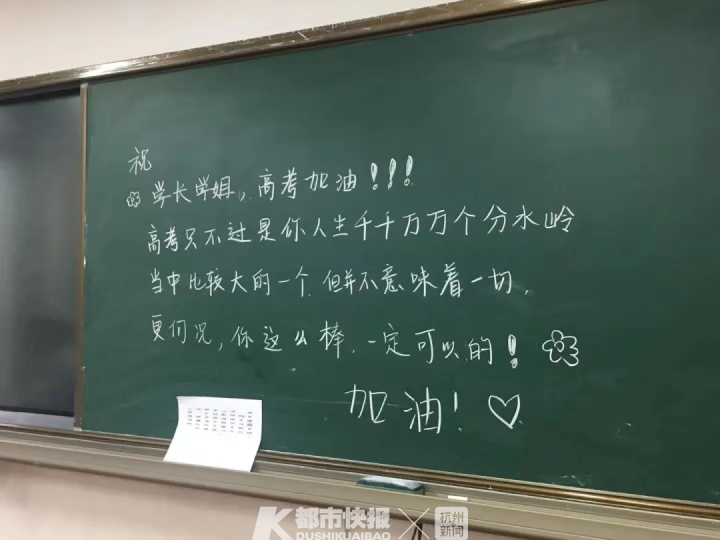 祝
学长学姐,高考加油!!!
高考只不过是你人生千千万万个分水岭
当中比较大的一个.但并不意味着一切.
更何况,你这么棒.一定可以的!
加油!♡
都市快报
DUSHIKUAIBAO
X
杭州
新闻